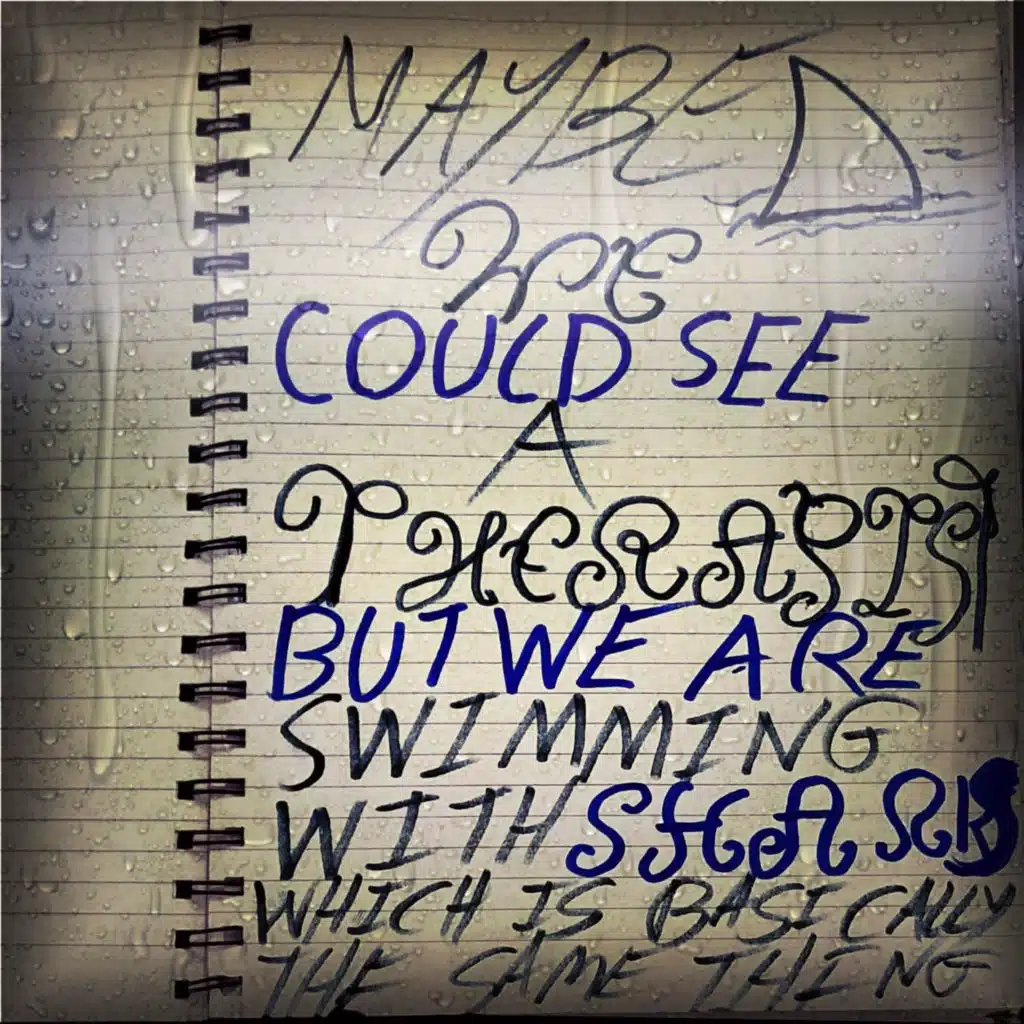 MAYBE
WE
COULD SEE
A
THERAPIST
BUT WE ARE
SWIMMING
WITH SHARKS
WHICH IS BASICALLY
THE SAME THING